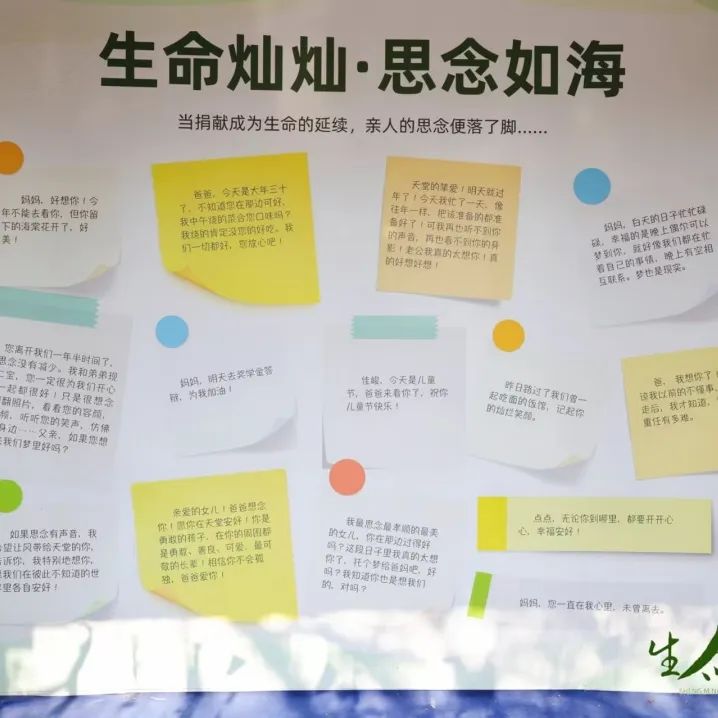 生命灿灿·思念如海
当捐献成为生命的延续，亲人的思念便落了脚......
妈妈，好想你！今
年不能去看你，但你留
下的海棠花开了，好
美！
爸爸，今天是大年三十
了，不知道您在那边可好，
我中午烧的菜合您口味吗？
我烧的肯定没您的好吃。我
们一切都好，您放心吧！
天堂的挚爱！明天就过
年了！今天我忙了一天，像
往年一样，把该准备的都准
备好了！可我再也听不到你
的声音，再也看不到你的身
影！老公我真的太想你！真
的好想好想！
妈妈，白天的日子忙忙碌
碌，幸福的是晚上偶尔可以
梦到你，就好像我们都在忙
着自己的事情，晚上有空相
互联系。梦也是现实。
您离开我们一年半时间了，
思念没有减少。我和弟弟现
二宝，您一定很为我们开心
一起都很好！只是很想念
翻照片，看看您的容颜，
频，听听您的笑声，仿佛
身边……父亲，如果您想
来我们梦里好吗？
妈妈，明天去奖学金答
辩，为我加油！
佳峻，今天是儿童
节，爸爸来看你了，祝你
儿童节快乐！
昨日路过了我们曾一
起吃面的饭馆，记起你
的灿烂笑颜。
爸，我想你了！
谅我以前的不懂事，
走后，我才知道，
重任有多难。
如果思念有声音，我
希望让风带给天堂的你，
告诉你，我特别地想你，
愿我们在彼此不知道的世
界里各自安好！
亲爱的女儿！爸爸想念
你！愿你在天堂安好！你是
勇敢的孩子，在你的周围都
是勇敢、善良、可爱、最可
敬的长辈！相信你不会孤
独，爸爸爱你！
我最思念最孝顺的最美
的女儿，你在那边过得好
吗？这段日子里我真的太想
你了，托个梦给爸妈吧，好
吗？我知道你也是想我们
的，对吗？
点点，无论你到哪里，都要开开心
心，幸福安好！
妈妈，您一直在我心里，未曾离去。
生